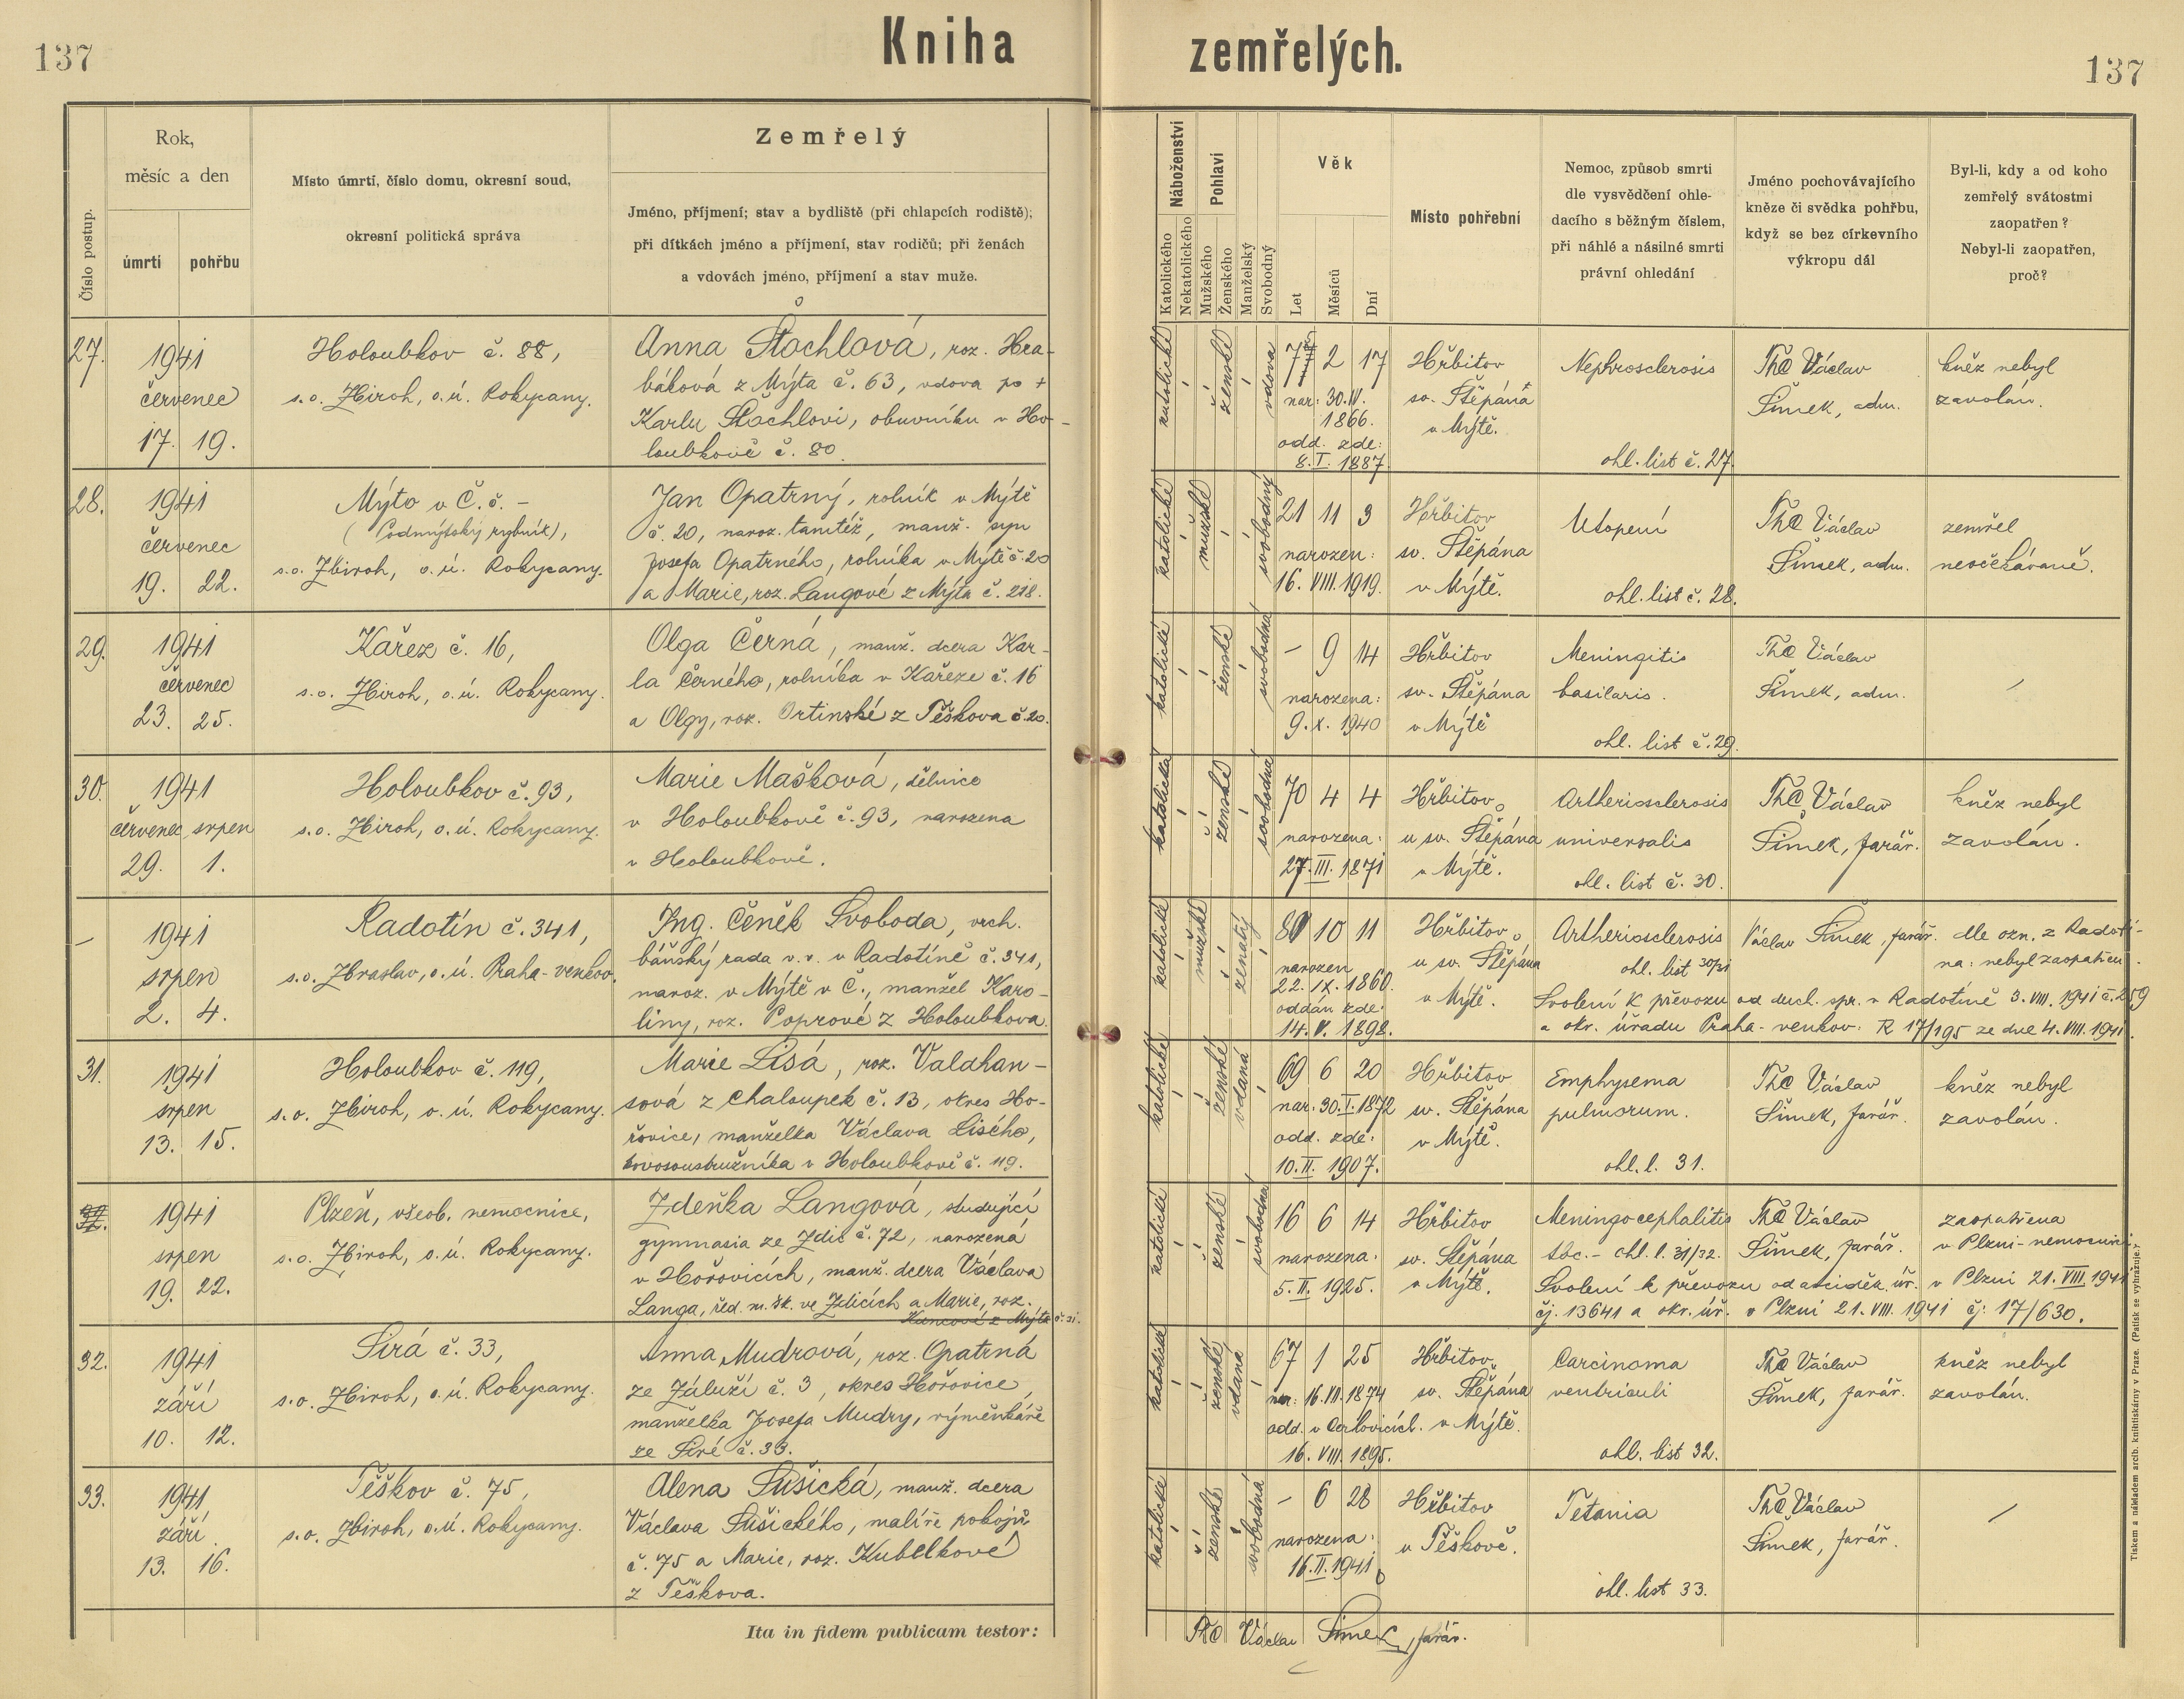 137
Kniha zemřelých.
137
Číslo postup.
Rok,
měsíc a den
úmrtí
pohřbu
Místo úmrtí, číslo domu, okresní soud,
okresní politická správa
Zemřelý
Jméno, příjmení; stav a bydliště (při chlapcích rodiště);
při dítkách jméno a příjmení, stav rodičů; při ženách
a vdovách jméno, příjmení a stav muže.
Náboženství
Katolického
Nekatolického
Pohlaví
Mužského
Ženského
Manželský
Svobodný
Věk
Let
Měsíců
Dní
Místo pohřební
Nemoc, způsob smrti
dle vysvědčení ohle-
dacího s běžným číslem,
při náhlé a násilné smrti
právní ohledání
Jméno pochovávajícího
kněze či svědka pohřbu,
když se bez církevního
výkropu dál
Byl-li, kdy a od koho
zemřelý svátostmi
zaopatřen?
Nebyl-li zaopatřen,
proč?
27.
1941
červenec
17. 19.
Holoubkov č. 88,
s.o. Zbiroh, o.ú. Rokycany.
Anna Štochlová, roz. Hra-
báková z Mýta č. 63, vdova po +
Karlu Štochlovi, obuvníku v Ho-
loubkově č. 80.
katolické
ženské
vdova
2 17
nar: 30. IV.
1866.
odd. zde:
8. I. 1887.
Hřbitov
sv. Štěpána
v Mýtě.
Nephrosclerosis
ohl. list č. 27.
Václav
Šimek, adm.
kněz nebyl
zavolán.
28.
1941
červenec
19. 22.
Mýto v Č. č. -
(Podmýtský rybník),
s.o. Zbiroh, o.ú. Rokycany.
Jan Opatrný, rolník v Mýtě
č. 20, naroz. tamtéž, manž. syn
Josefa Opatrného, rolníka v Mýtě č. 20
a Marie, roz. Langové z Mýta č. 218.
katolické
mužské
svobodný
21 11 3
narozen:
16. VIII. 1919.
Hřbitov
sv. Štěpána
v Mýtě.
Utopení
ohl. list č. 28.
Václav
Šimek, adm.
zemřel
neočekávaně.
29.
1941
červenec
23. 25.
Kařez č. 16,
s.o. Zbiroh, o.ú. Rokycany.
Olga Černá, manž. dcera Kar-
la Černého, rolníka v Kařeze č. 16
a Olgy, roz. Ortinské z Těškova č. 20.
katolické
ženské
svobodná
- 9 14
narozena:
9. X. 1940
Hřbitov
sv. Štěpána
v Mýtě
Meningitis
basilaris.
ohl. list č. 29.
Václav
Šimek, adm.
30.
1941
červenec srpen
29. 1.
Holoubkov č. 93,
s.o. Zbiroh, o.ú. Rokycany.
Marie Mašková, dělnice
v Holoubkově č. 93, narozena
v Holoubkově.
katolická
ženské
svobodná
70 4 4
narozena:
27. III. 1871
Hřbitov
u sv. Štěpána
v Mýtě.
Artheriosclerosis
universalis
ohl. list č. 30.
Václav
Šimek, farář.
kněz nebyl
zavolán.
-
1941
srpen
2. 4.
Radotín č. 341,
s.o. Zbraslav, o.ú. Praha-venkov.
Ing. Čeněk Svoboda, vrch.
báňský rada v.v. v Radotíně č. 341,
naroz. v Mýtě v Č., manžel Karo-
liny, roz. Poprové z Holoubkova.
katolické
mužské
ženatý
80 10 11
narozen
22. IX. 1860.
oddán zde:
14. V. 1898.
Hřbitov
u sv. Štěpána
v Mýtě.
Artheriosclerosis
ohl. list 30/31
Václav Šimek, farář.
dle ozn. z Radotí-
na: nebyl zaopatřen.
Svolení k převozu od duch. spr. v Radotíně 3. VIII. 1941 č. 259
a okr. úřadu Praha-venkov: R 17/195 ze dne 4. VIII. 1941.
31.
1941
srpen
13. 15.
Holoubkov č. 119,
s.o. Zbiroh, o.ú. Rokycany.
Marie Lisá, roz. Valdhan-
sová z Chaloupek č. 13, okres Ho-
řovice, manželka Václava Lisého,
kovosoustružníka v Holoubkově č. 119.
katolické
ženské
vdaná
69 6 20
nar: 30. I. 1872
odd. zde:
10. II. 1907.
Hřbitov
sv. Štěpána
v Mýtě.
Emphysema
pulmorum.
ohl. l. 31.
Václav
Šimek, farář.
kněz nebyl
zavolán.
1941
srpen
19. 22.
Plzeň, všeob. nemocnice,
s.o. Zbiroh, o.ú. Rokycany.
Zdeňka Langová, studující
gymnasia ze Zdic č. 72, narozena
v Hořovicích, manž. dcera Václava
Langa, řed. m. šk. ve Zdicích a Marie, roz.
z Mýta č. 31.
katolické
ženské
svobodná
16 6 14
narozena:
5. II. 1925.
Hřbitov
sv. Štěpána
v Mýtě.
Meningocephalitis
tbc. - ohl. l. 31/32.
Václav
Šimek, farář.
zaopatřena
v Plzni-nemocnici.
Svolení k převozu od arciděk. úř. v Plzni 21. VIII. 1941
čj. 13641 a okr. úř. v Plzni 21. VIII. 1941 čj. 17/630.
32.
1941
září
10. 12.
Sirá č. 33,
s.o. Zbiroh, o.ú. Rokycany.
Anna Mudrová, roz. Opatrná
ze Záluží č. 3, okres Hořovice,
manželka Josefa Mudry, výměnkáře
ze Siré č. 33.
katolické
ženské
vdaná
67 1 25
nar: 16. VII. 1874
odd. v Cerhovicích.
16. VIII. 1895.
Hřbitov
sv. Štěpána
v Mýtě.
Carcinoma
ventriculi
ohl. list 32.
Václav
Šimek, farář.
kněz nebyl
zavolán.
33.
1941
září
13. 16.
Těškov č. 75,
s.o. Zbiroh, o.ú. Rokycany.
Alena Sušická, manž. dcera
Václava Sušického, malíře pokojů
č. 75 a Marie, roz. Kubelkové
z Těškova.
katolické
ženské
svobodná
- 6 28
narozena:
16. II. 1941
Hřbitov
v Těškově.
Tetania
ohl. list 33.
Václav
Šimek, farář.
Ita in fidem publicam testor:
Václav Šimek, farář.
Tiskem a nákladem arcib. knihtiskárny v Praze. (Patisk se vyhražuje.)